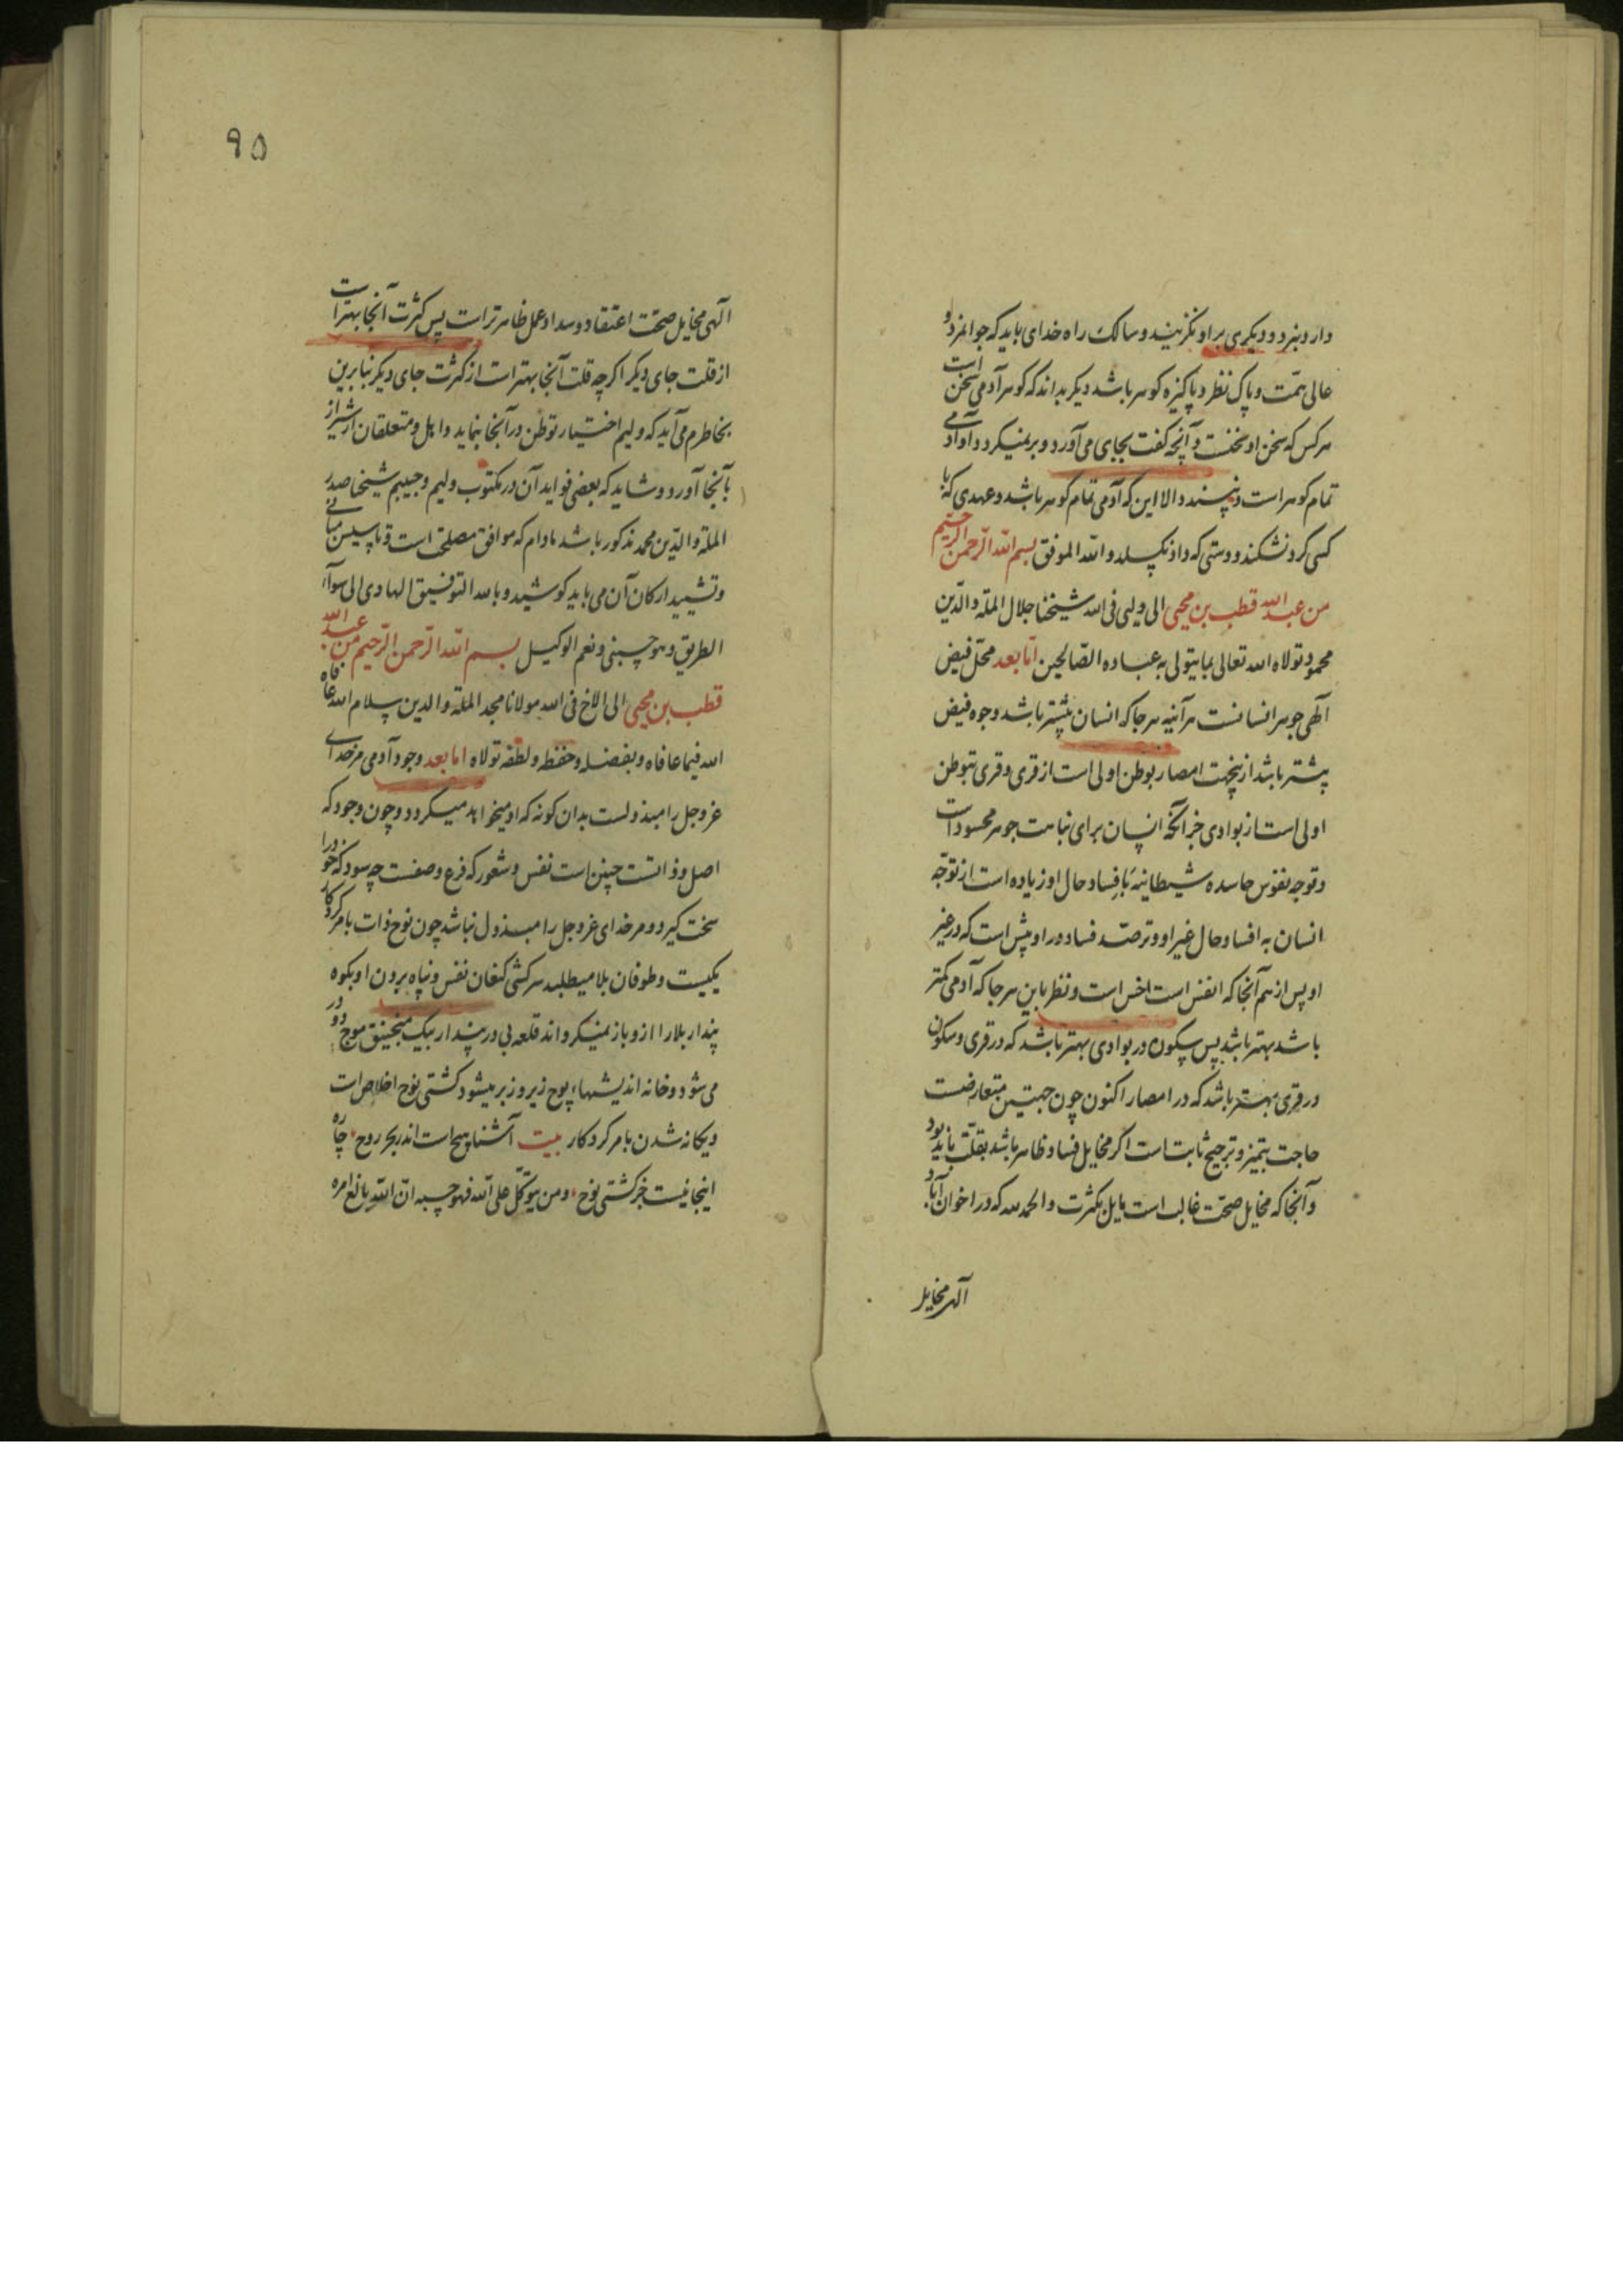 دارد نبرد و دیکری بر او نکزیند و سالک راه خدای باید که جوانمرد و
عالی همت و پاک نظر و پاکیزه کوهر باشد دیکر بداند که کوهر آدمی سخن است
هر کس که سخن او نخست و آنچه کفت بجای می آورد و بر نمیکردد او آدمی
تمام کوهر است و نپسندد الا این که آدمی تمام کوهر باشد و عهدی که با
کسی کرد نشکند و دوستی که داد نکسلد والله الموفق بسم الله الرحمن الرحیم
من عبد الله قطب بن محیی الی ولیی فی الله شیخنا جلال الملة والدین
محمود تولاه الله تعالی بما یتولی به عباده الصالحین اما بعد محل فیض
آلهی جوهر انسانست هر آینه هر جا که انسان بیشتر باشد وجوه فیض
بیشتر باشد ازینجهت امصار بوطن اولی است از قری و قری بتوطن
اولی است از بوادی جز آنکه انسان برای نباهت جوهر محسود است
و توجه نفوس حاسده شیطانیه بافساد حال او زیاده است از توجه
انسان به افساد حال غیر او و ترصد فساد در او بیش است که در غیر
او پس از هم آنجا که انفس است اخس است و نظر باین هر جا که آدمی کمتر
باشد بهتر باشد پس سکون در بوادی بهتر باشد که در قری و سکون
در قری بهتر باشد که در امصار اکنون چون جهتین متعارضست
حاجت بتمیز و ترجیح ثابت است اکر مخایل فساد ظاهر باشد بقلت باید بود
و آنجا که مخایل صحت غالب است مایل بکثرت والحمد لله که در اخوان آباد
آلهی مخایل
۹۵
آلهی مخایل صحت اعتقاد و سداد عمل ظاهرتر است پس کثرت آنجا بهتر است
از قلت جای دیکر اکرچه قلت آنجا بهتر است از کثرت جای دیکر بنابرین
بخاطرم می آید که ولیم اختیار توطن در آنجا نماید و اهل و متعلقان از شیراز
بآنجا آورد و شاید که بعضی فواید آن در مکتوب ولیم و حبیبم شیخنا صدر
الملة والدین محمد مذکور باشد مادام که موافق مصلحت است و تاسیس مبانی
و تشیید ارکان آن می باید کوشید و بالله التوفیق الهادی الی سوآء
الطریق و هو حسبی و نعم الوکیل بسم الله الرحمن الرحیم من عبد الله
قطب بن محیی الی الاخ فی الله مولانا مجد الملة والدین سلام الله عافاه
الله فیما عافاه و بفضله و حفظه و لطفه تولاه اما بعد وجود آدمی مر خدای
عز وجل را مبذولست بدان کونه که او میخواهد میکردد و چون وجود که
اصل و ذاتست چنین است نفس و شعور که فرع و صفت چه سود که خود را
سخت کیرد و مر خدای عز وجل را مبذول نباشد چون نوح ذات با مر کردکار
یکیست و طوفان بلا میطلبد سرکشی کنعان نفس و پناه بردن او بکوه
پندار بلا را از و باز نمیکرداند قلعه بی در پندار بیک منجنیق موج در دور
می شود و خانه اندیشهاء پوچ زیر و زبر میشود کشتی نوح اخلاص است
و یکانه شدن با مر کردکار بیت آشنا هیچ است اندر بحر روح چاره
اینجا نیست جز کشتی نوح و من یتوکل علی الله فهو حسبه ان الله بالغ امره